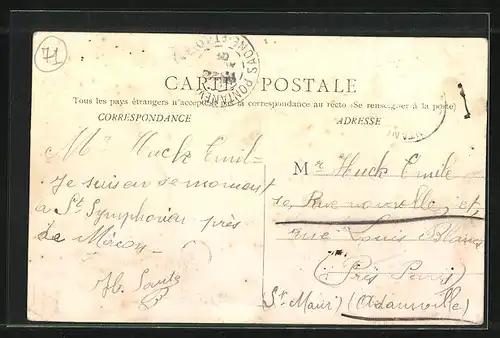 71
PONTANEVAUX
SAÔNE-ET-LOIRE
CARTE POSTALE
Tous les pays étrangers n'acceptent pas la correspondance au recto (Se renseigner à la poste)
CORRESPONDANCE
ADRESSE
Mr Huck Emil
Je suis en se moment
a St Symphorien près
de Mâcon
Mr Huck Emile
rue Louis Blanc
(Près Paris)
St Maur) (Adamville)